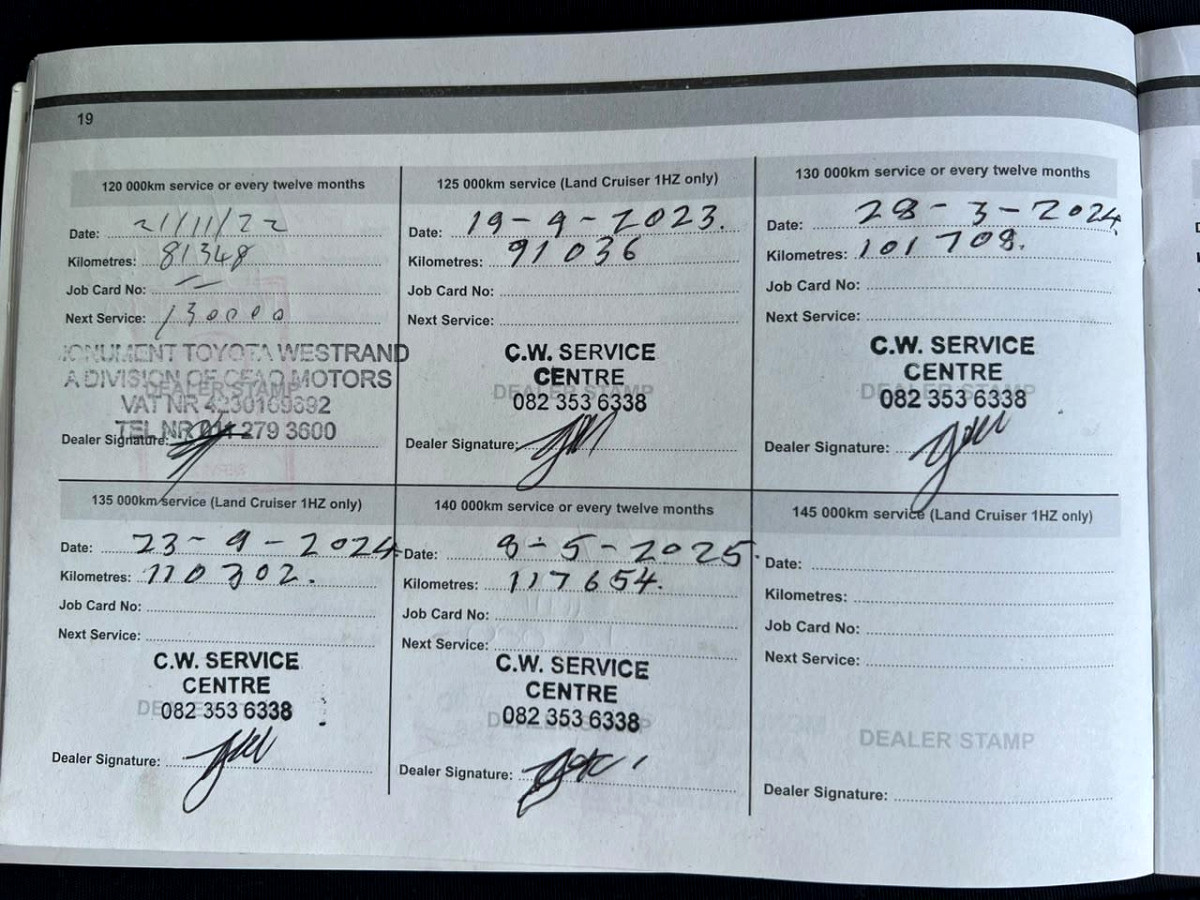 19
120 000km service or every twelve months
Date: 21/11/22
Kilometres: 81348
Job Card No: —
Next Service: 130000
MONUMENT TOYOTA WESTRAND
A DIVISION OF CFAO MOTORS
DEALER STAMP
VAT NR
TEL NR 011 279 3600
Dealer Signature:
125 000km service (Land Cruiser 1HZ only)
Date: 19-9-2023.
Kilometres: 91036
Job Card No:
Next Service:
C.W. SERVICE
CENTRE
DEALER STAMP
082 353 6338
Dealer Signature:
130 000km service or every twelve months
Date: 28-3-2024
Kilometres: 101708.
Job Card No:
Next Service:
C.W. SERVICE
CENTRE
DEALER STAMP
082 353 6338
Dealer Signature:
135 000km service (Land Cruiser 1HZ only)
Date: 23-9-2024
Kilometres: 110302.
Job Card No:
Next Service:
C.W. SERVICE
CENTRE
082 353 6338
Dealer Signature:
140 000km service or every twelve months
Date: 8-5-2025.
Kilometres: 117654.
Job Card No:
Next Service:
C.W. SERVICE
CENTRE
DEALER STAMP
082 353 6338
Dealer Signature:
145 000km service (Land Cruiser 1HZ only)
Date:
Kilometres:
Job Card No:
Next Service:
DEALER STAMP
Dealer Signature: